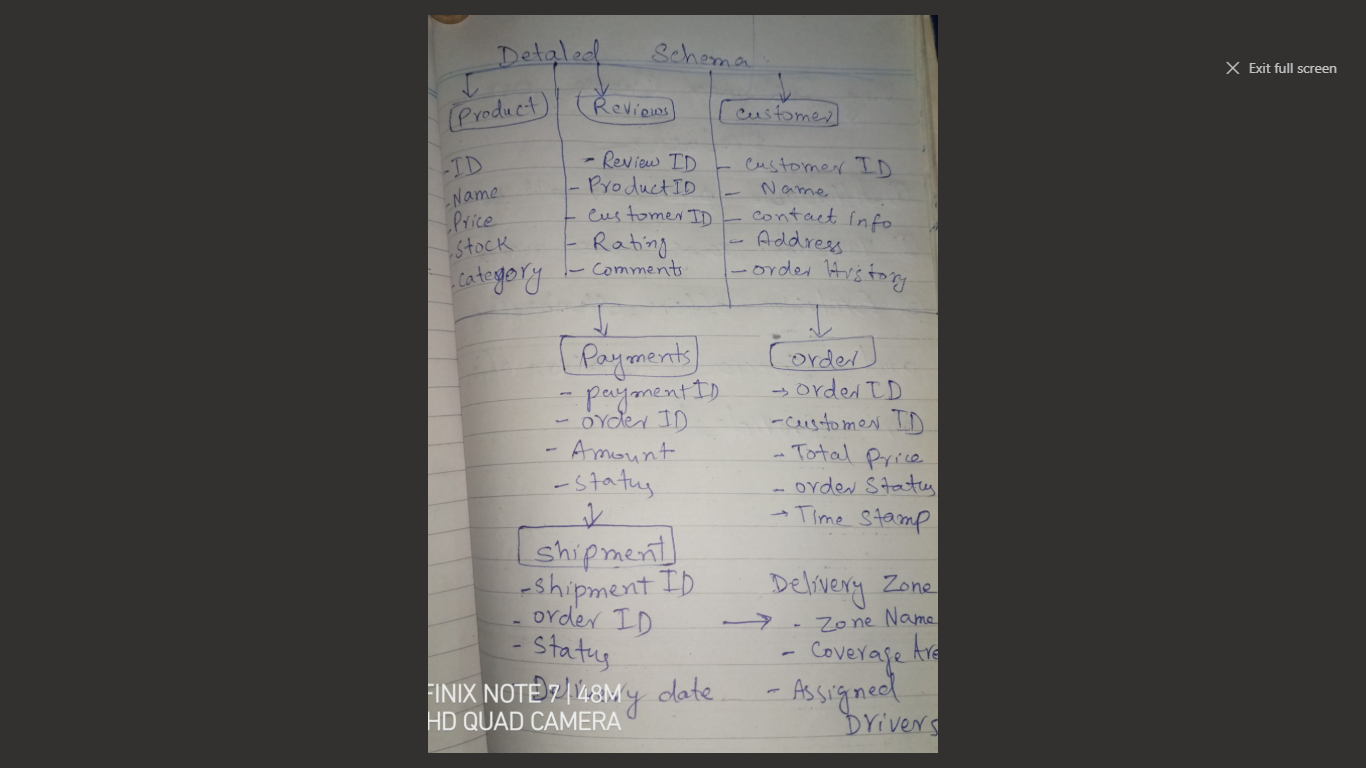 Detaled Schema
Product
-ID
-Name
-Price
-Stock
-Category
Reviews
- Review ID
- ProductID
- customer ID
- Rating
- Comments
customer
- customer ID
- Name
- contact info
- Address
- order History
Payments
- payment ID
- order ID
- Amount
- status
order
→ order ID
- customer ID
- Total price
- order Status
→ Time Stamp
shipment
- shipment ID
- order ID
- Status
- Delivery date
Delivery Zone
→ - Zone Name
- Coverage Are
- Assigned
Drivers
FINIX NOTE 7 | 48M
HD QUAD CAMERA
Exit full screen